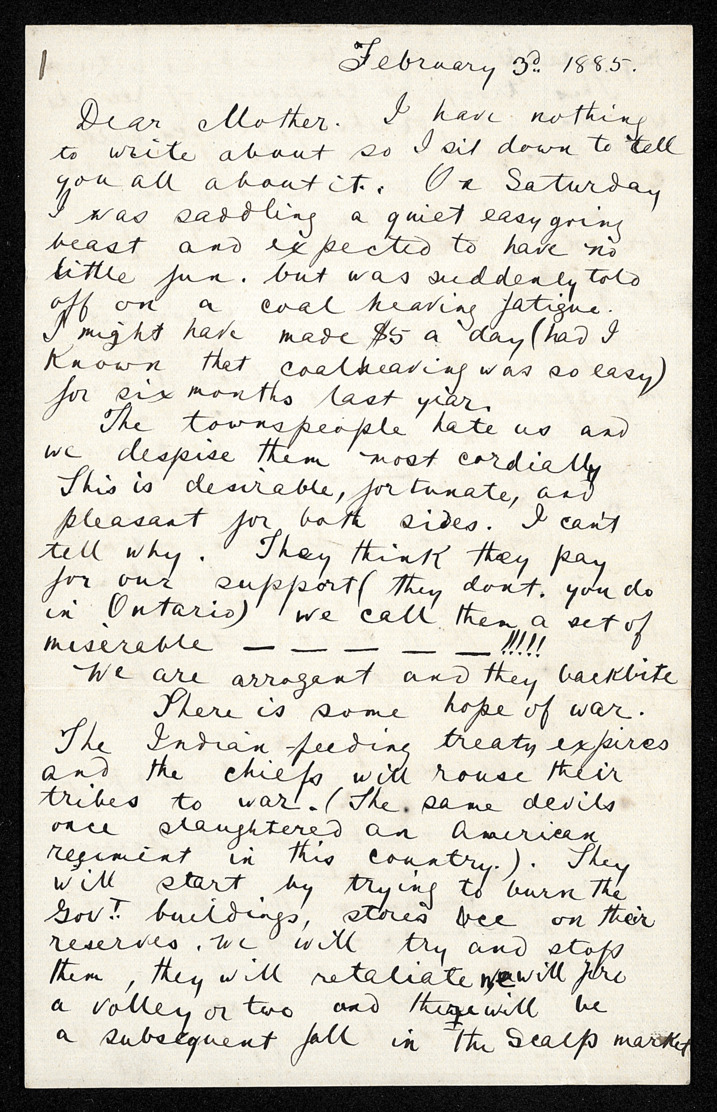 1
February 3d. 1885.
Dear Mother. I have nothing
to write about so I sit down to tell
you all about it. On Saturday
I was saddling a quiet easy going
beast and expected to have no
little fun. but was suddenly told
off on a coal heaving fatigue.
I might have made $5 a day (had I
known that coalheaving was so easy)
for six months last year.
The townspeople hate us and
we despise them most cordially
This is desirable, fortunate, and
pleasant for both sides. I can't
tell why. They think they pay
for our support (they dont. you do
in Ontario) we call them a set of
miserable — — — — — !!!!!
We are arrogant and they backbite
There is some hope of war.
The Indian feeding treaty expires
and the chiefs will rouse their
tribes to war. (The same devils
once slaughtered an American
regiment in this country.). They
will start by trying to burn the
Govt. buildings, stores &ce on their
reserves. we will try and stop
them, they will retaliate we will fire
a volley or two and there will be
a subsequent fall in the Scalp market